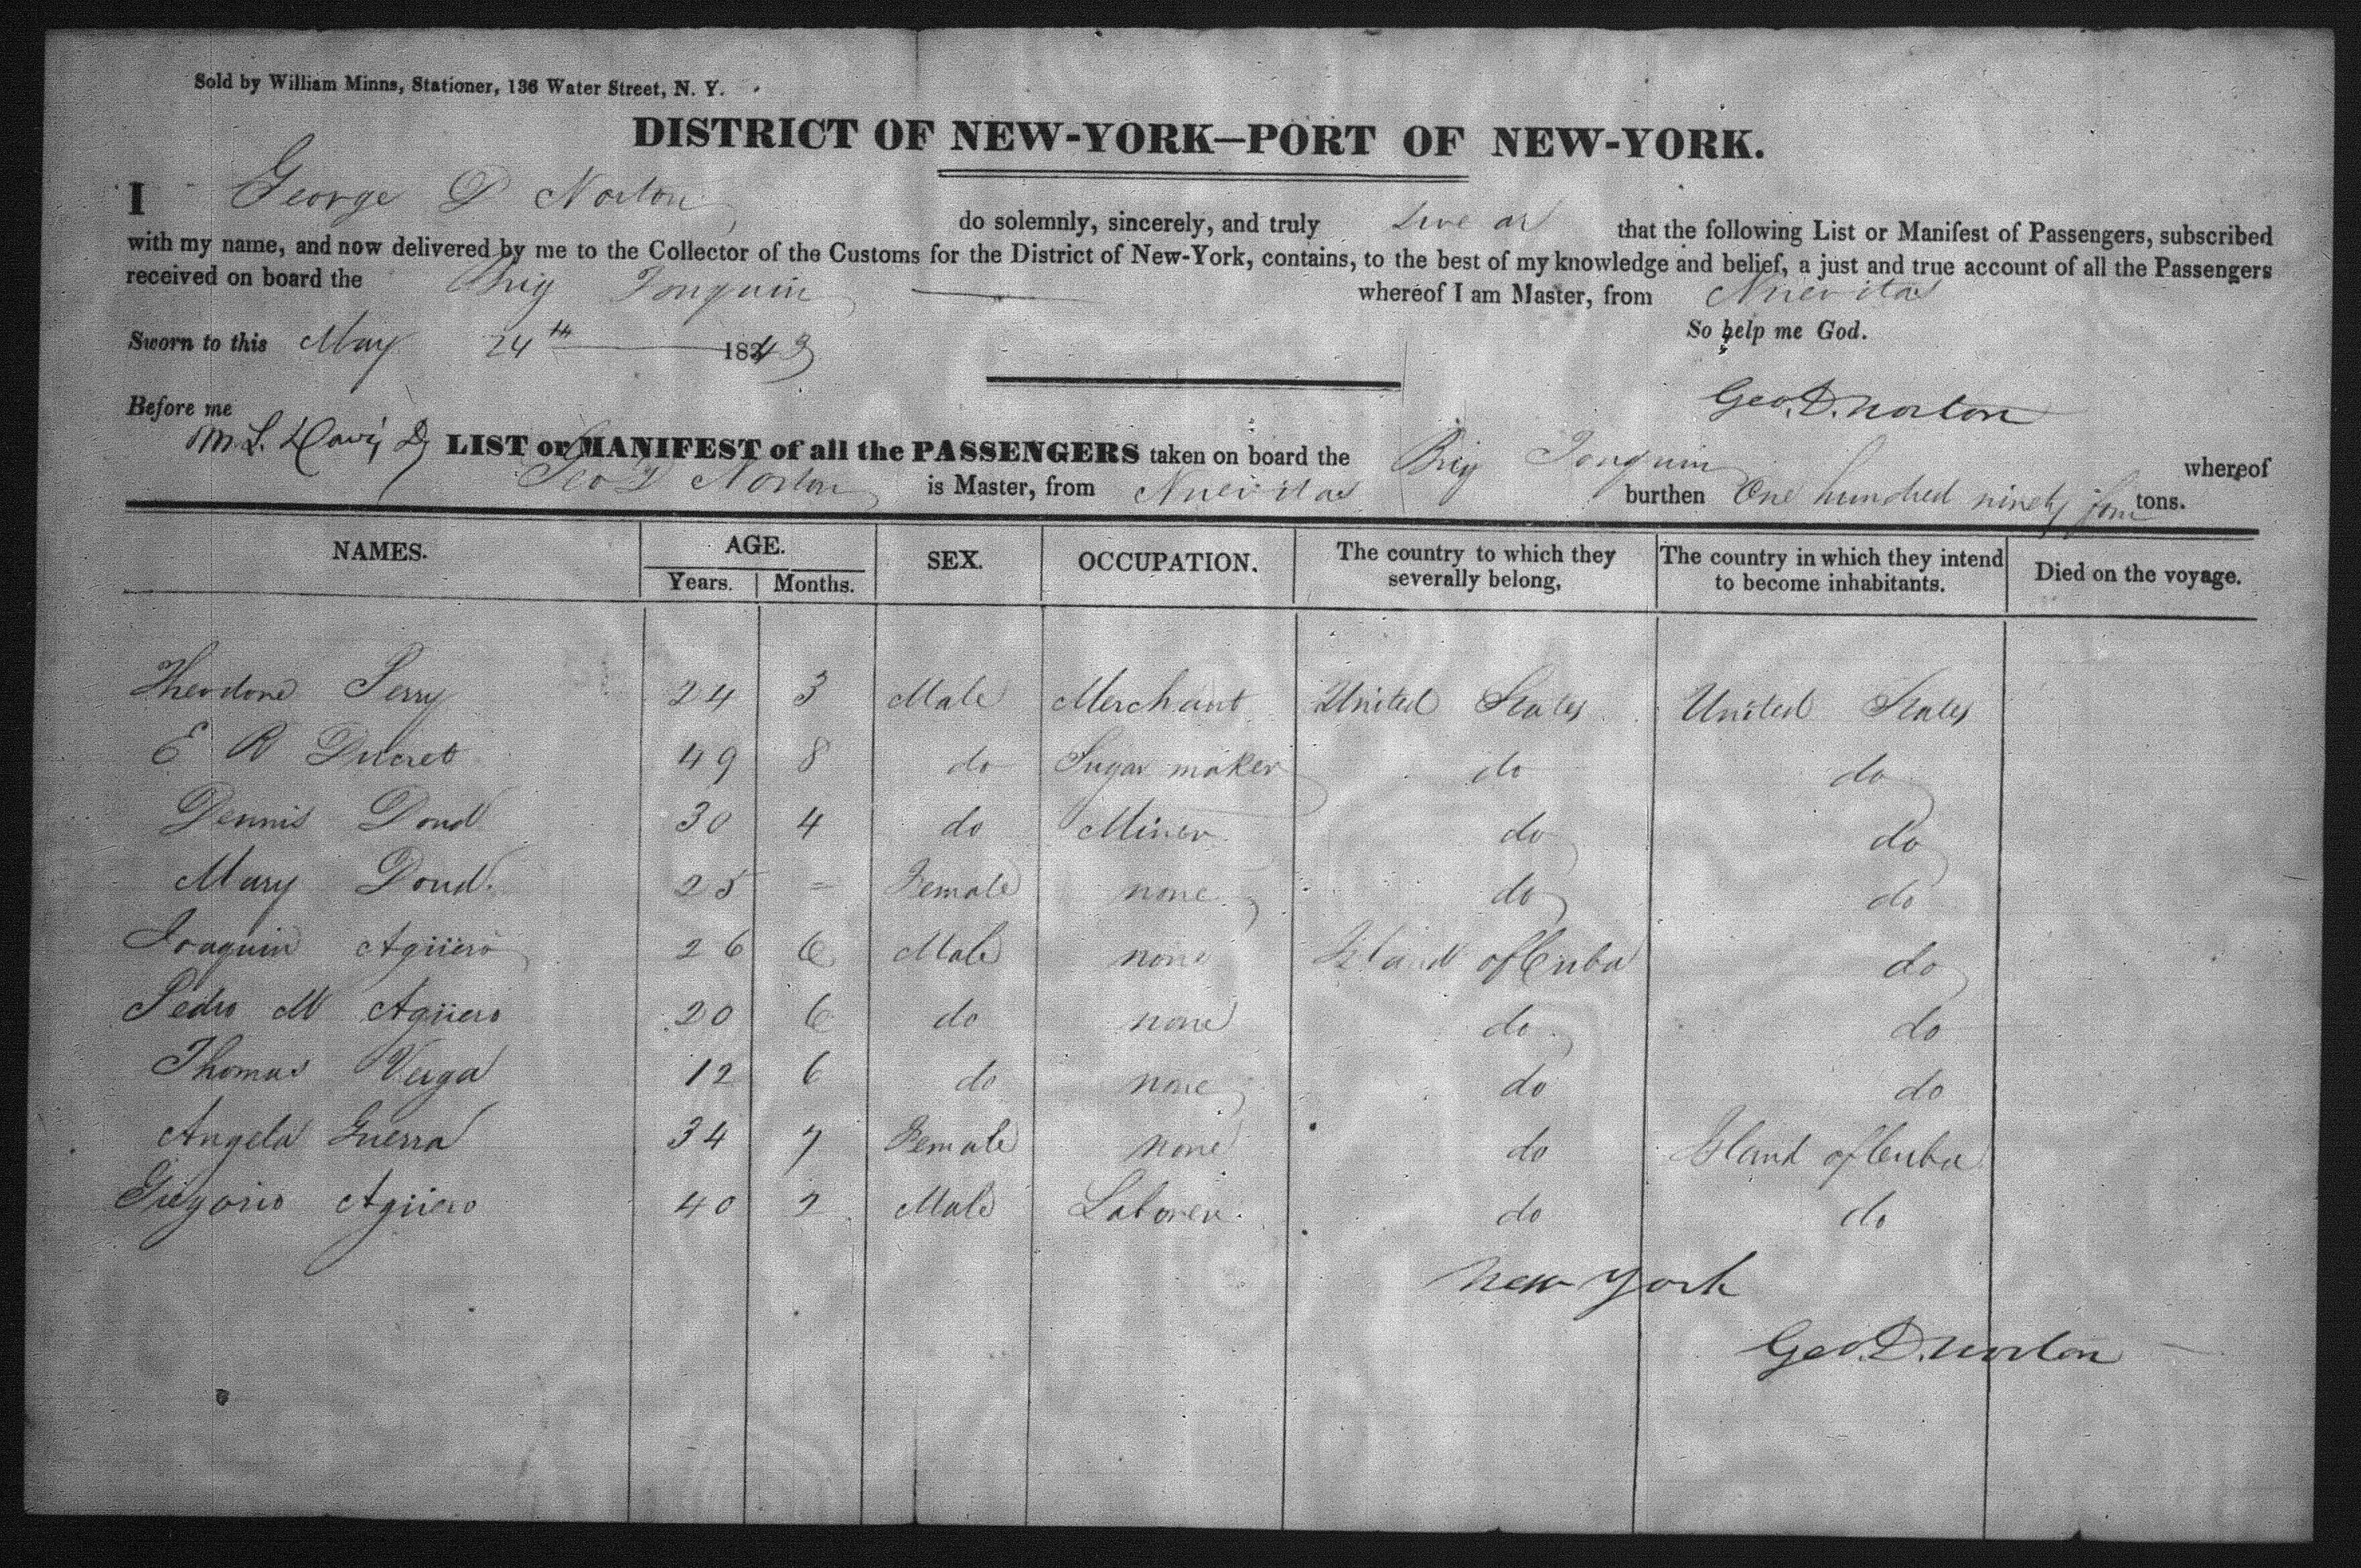 Sold by William Minns, Stationer, 136 Water Street, N. Y.
DISTRICT OF NEW-YORK—PORT OF NEW-YORK.
I George D Norton do solemnly, sincerely, and truly swear that the following List or Manifest of Passengers, subscribed
with my name, and now delivered by me to the Collector of the Customs for the District of New-York, contains, to the best of my knowledge and belief, a just and true account of all the Passengers
received on board the Brig Tonquin whereof I am Master, from Nuevitas
Sworn to this May 24th 1843 So help me God.
Before me Geo. D. Norton
M. L. Davis LIST or MANIFEST of all the PASSENGERS taken on board the Brig Tonquin whereof
Geo D Norton is Master, from Nuevitas burthen One hundred ninety four tons.
NAMES. AGE. SEX. OCCUPATION. The country to which they severally belong, The country in which they intend to become inhabitants. Died on the voyage.
Years. Months.
Theodore Perry 24 3 Male Merchant United States United States
E R Ducret 49 8 do Sugar maker do do
Dennis Doud 30 4 do Miner do do
Mary Doud. 25 = Female none do do
Joaquin Agüero 26 6 Male none Island of Cuba do
Pedro M Agüero 20 6 do none do do
Thomas Verga 12 6 do none do do
Angela Guerra 34 7 Female none do Island of Cuba
Gregorio Agüero 40 2 Male Laborer. do do
New York
Geo. D. Norton